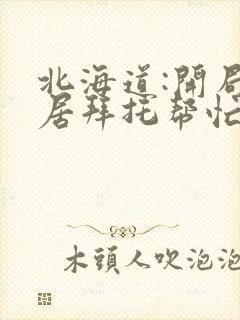 北海道:開局
居拜托幫忙
木頭人吹泡泡